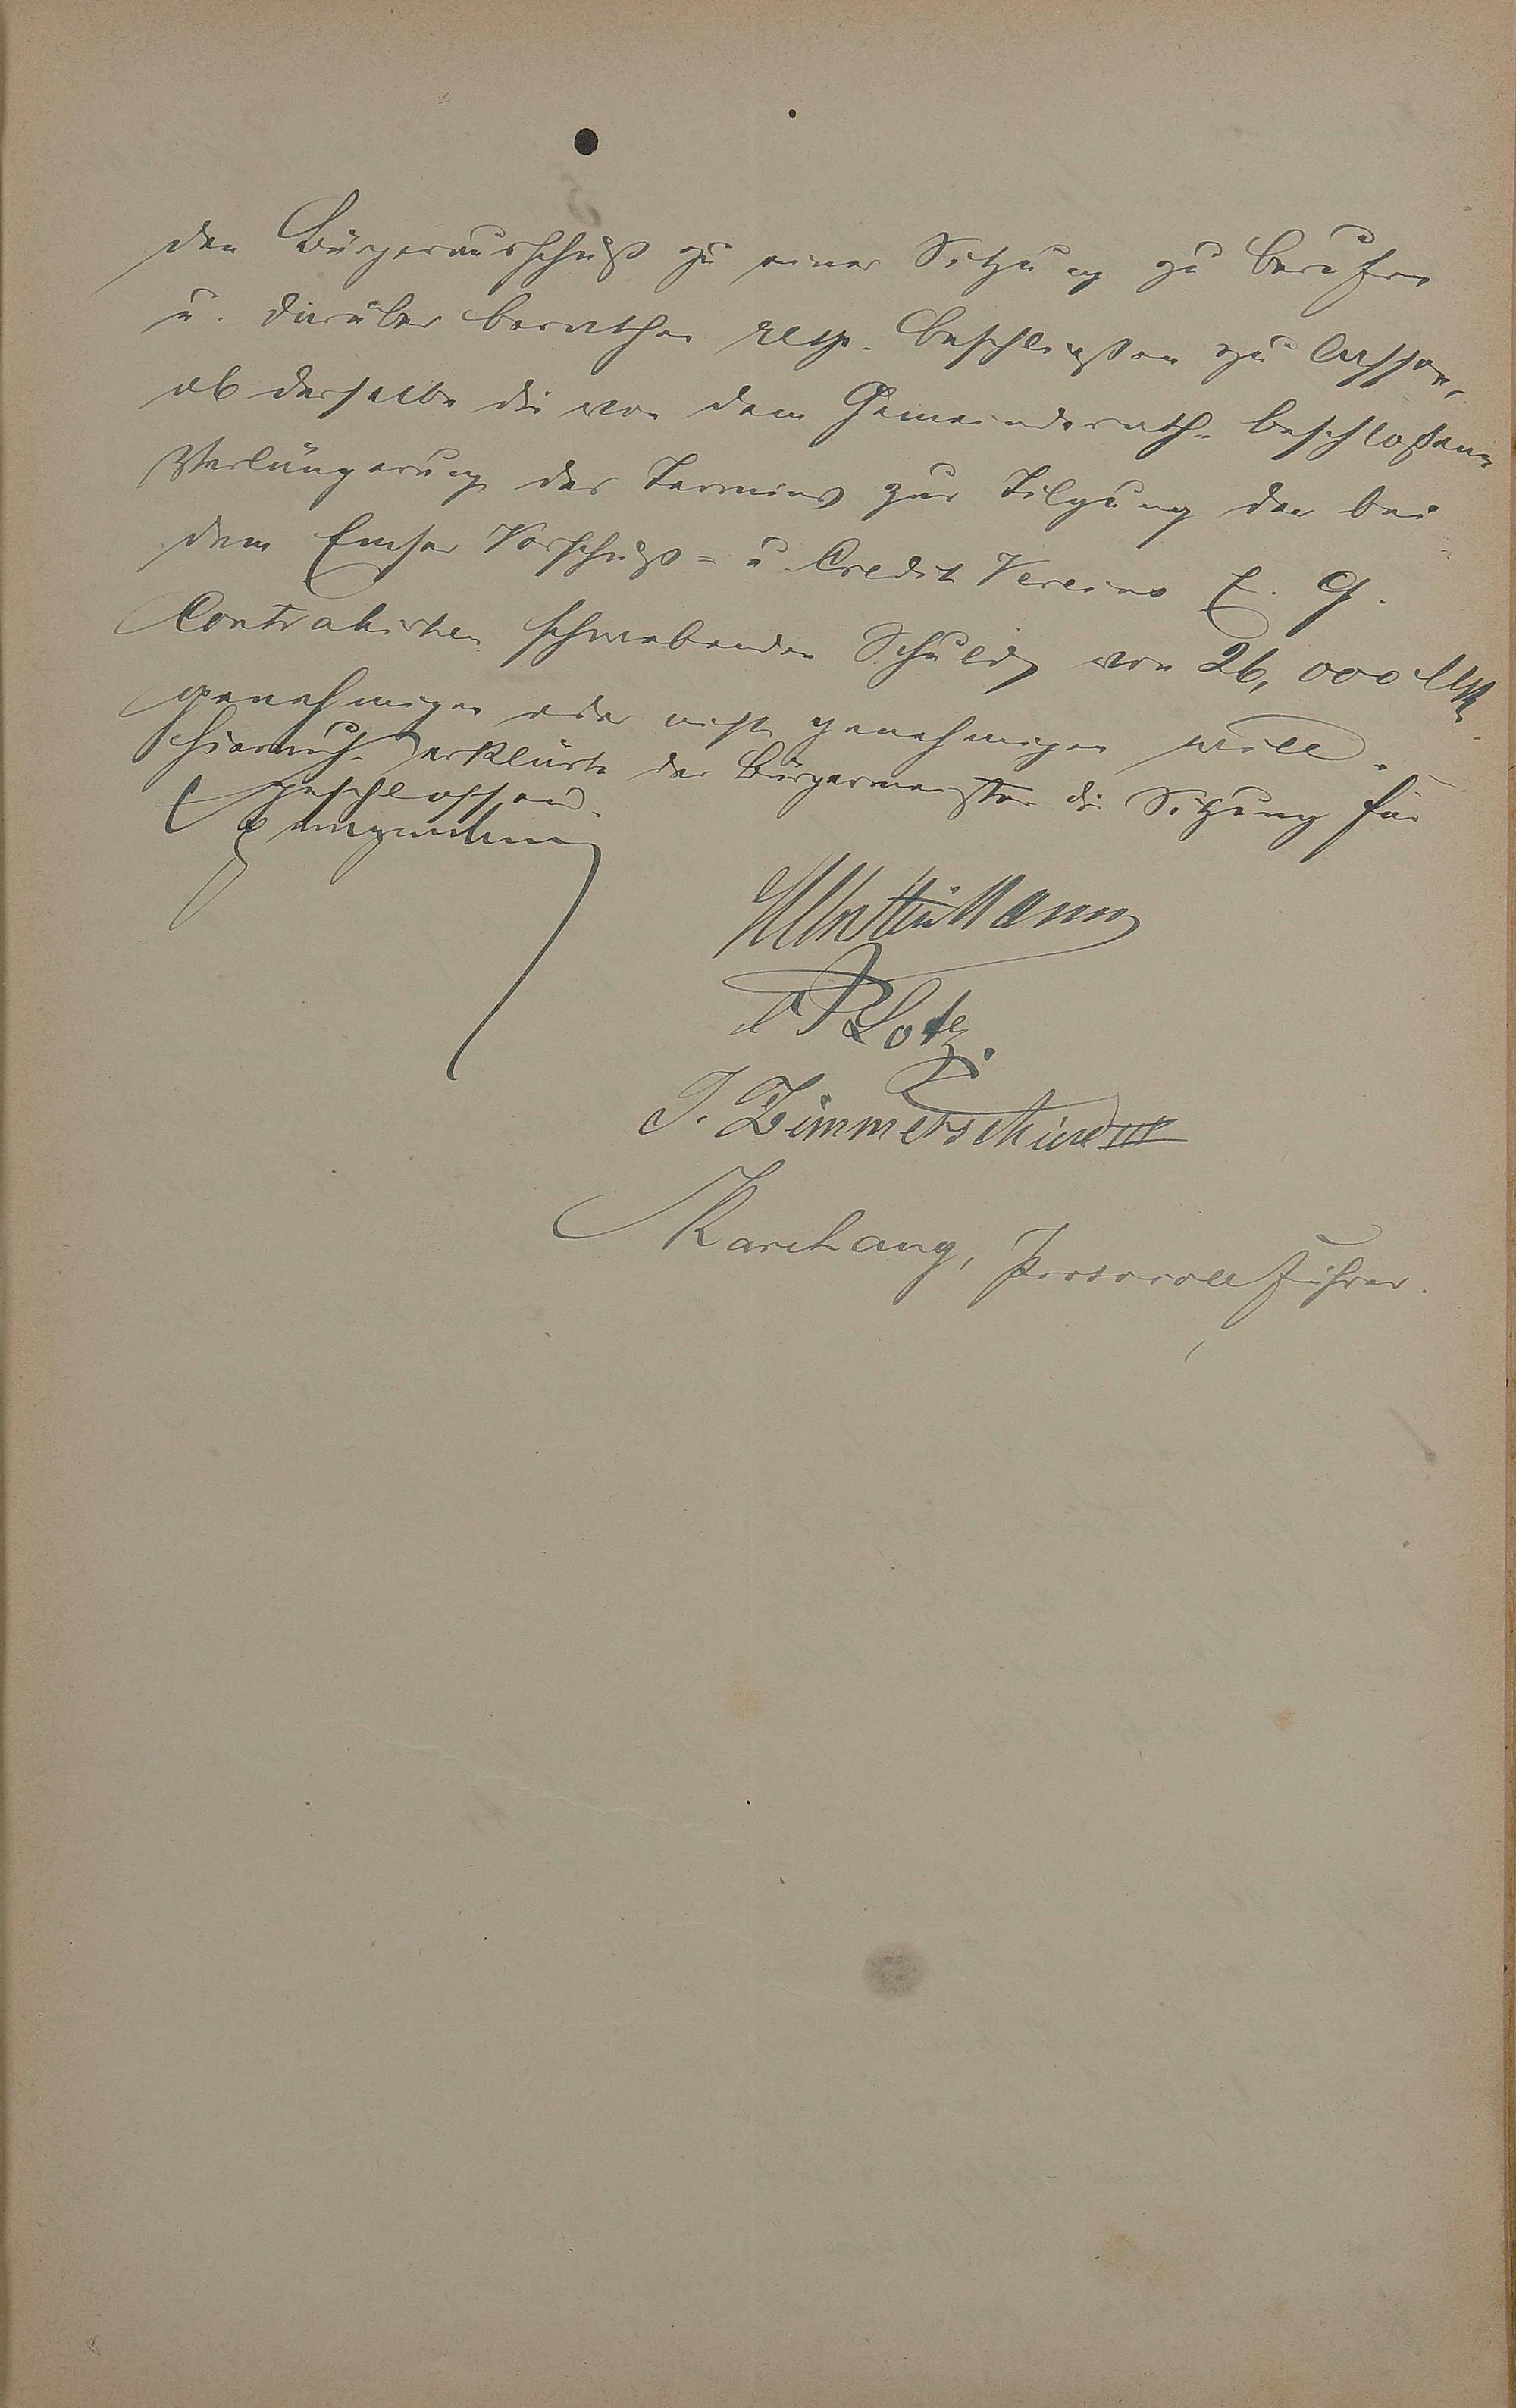 den Bürgerausschuß zu einer Sitzung zu berufen
u. darüber berathen resp. beschließen zu lassen,
ob derselbe die von dem Gemeinderath beschloßene
Verlängerung des Termins zur Tilgung der bei
dem Emser Vorschuß= u. Credit Vereins E. G.
Contrahirten schwebenden Schuld von 26,000 Mk.
genehmigen oder nicht genehmigen will.
Hiernach erklärte der Bürgermeister die Sitzung für
geschlossen.
Lotz.
J. Zimmerschied III
Protocollführer.